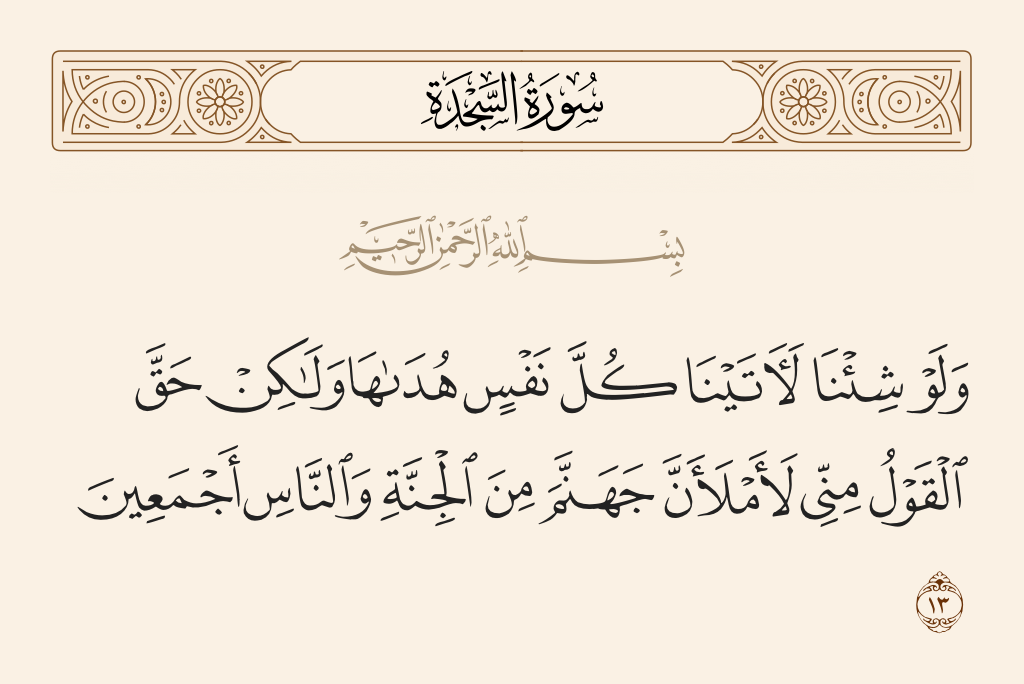 سُورَةُ السَّجْدَةِ
بِسْمِ ٱللَّهِ ٱلرَّحْمَٰنِ ٱلرَّحِيمِ
وَلَوْ شِئْنَا لَأَتَيْنَا كُلَّ نَفْسٍ هُدَىٰهَا وَلَٰكِنْ حَقَّ
ٱلْقَوْلُ مِنِّى لَأَمْلَأَنَّ جَهَنَّمَ مِنَ ٱلْجِنَّةِ وَٱلنَّاسِ أَجْمَعِينَ
١٣